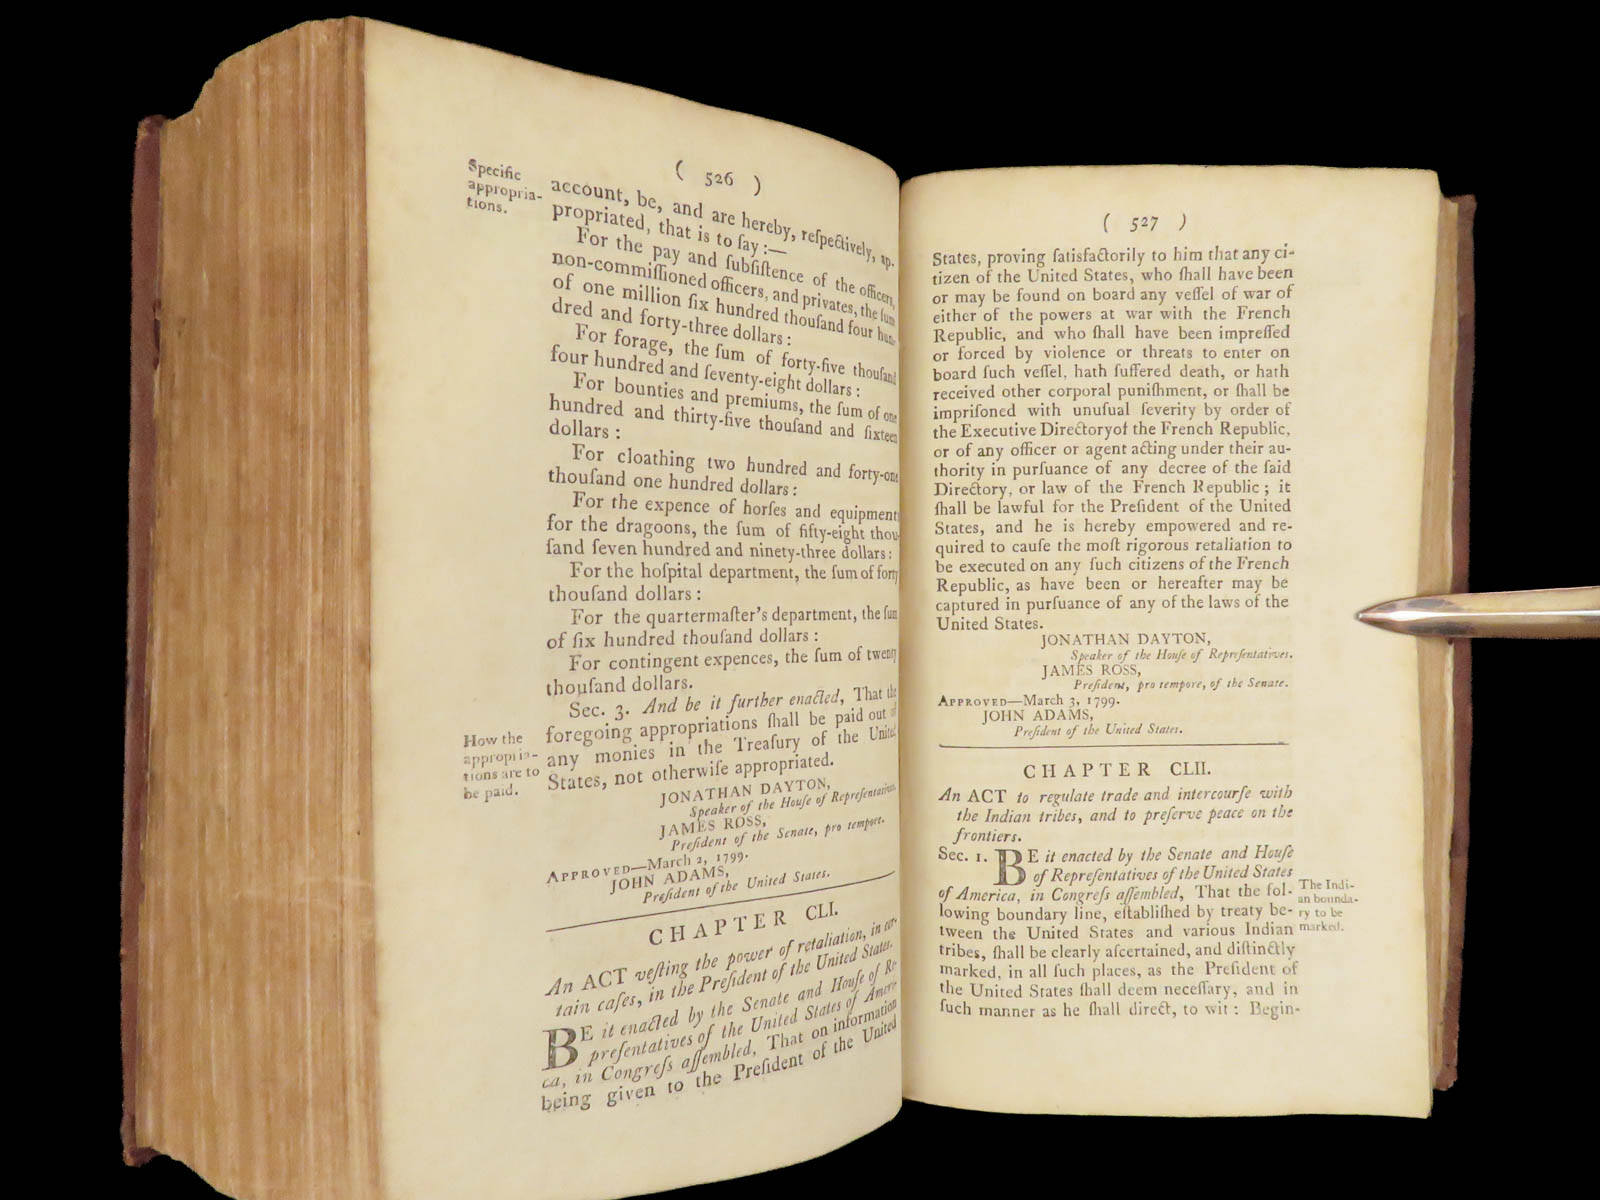 ( 526 )
Specific
appropria-
tions.
account, be, and are hereby, reſpectively, ap-
propriated, that is to ſay :—
For the pay and ſubſiſtence of the officers,
non-commiſſioned officers, and privates, the ſum
of one million ſix hundred thouſand four hun-
dred and forty-three dollars :
For forage, the ſum of forty-five thouſand
four hundred and ſeventy-eight dollars :
For bounties and premiums, the ſum of one
hundred and thirty-five thouſand and ſixteen
dollars :
For cloathing two hundred and forty-one
thouſand one hundred dollars :
For the expence of horſes and equipments
for the dragoons, the ſum of fifty-eight thou-
ſand ſeven hundred and ninety-three dollars :
For the hoſpital department, the ſum of forty
thouſand dollars :
For the quartermaſter's department, the ſum
of ſix hundred thouſand dollars :
For contingent expences, the ſum of twenty
thouſand dollars.
Sec. 3. And be it further enacted, That the
How the
appropria-
tions are to
be paid.
foregoing appropriations ſhall be paid out of
any monies in the Treaſury of the United
States, not otherwiſe appropriated.
JONATHAN DAYTON,
Speaker of the Houſe of Repreſentatives.
JAMES ROSS,
Preſident of the Senate, pro tempore.
APPROVED—March 2, 1799.
JOHN ADAMS,
Preſident of the United States.
CHAPTER CLI.
An ACT veſting the power of retaliation, in cer-
tain caſes, in the Preſident of the United States.
BE it enacted by the Senate and Houſe of Re-
preſentatives of the United States of Ameri-
ca, in Congreſs aſſembled, That on information
being given to the Preſident of the United
( 527 )
States, proving ſatisfactorily to him that any ci-
tizen of the United States, who ſhall have been
or may be found on board any veſſel of war of
either of the powers at war with the French
Republic, and who ſhall have been impreſſed
or forced by violence or threats to enter on
board ſuch veſſel, hath ſuffered death, or hath
received other corporal puniſhment, or ſhall be
impriſoned with unuſual ſeverity by order of
the Executive Directoryof the French Republic,
or of any officer or agent acting under their au-
thority in purſuance of any decree of the ſaid
Directory, or law of the French Republic ; it
ſhall be lawful for the Preſident of the United
States, and he is hereby empowered and re-
quired to cauſe the moſt rigorous retaliation to
be executed on any ſuch citizens of the French
Republic, as have been or hereafter may be
captured in purſuance of any of the laws of the
United States.
JONATHAN DAYTON,
Speaker of the Houſe of Repreſentatives.
JAMES ROSS,
Preſident, pro tempore, of the Senate.
APPROVED—March 3, 1799.
JOHN ADAMS,
Preſident of the United States.
CHAPTER CLII.
An ACT to regulate trade and intercourſe with
the Indian tribes, and to preſerve peace on the
frontiers.
Sec. 1. BE it enacted by the Senate and Houſe
of Repreſentatives of the United States
of America, in Congreſs aſſembled, That the fol-
lowing boundary line, eſtabliſhed by treaty be-
tween the United States and various Indian
tribes, ſhall be clearly aſcertained, and diſtinctly
marked, in all ſuch places, as the Preſident of
the United States ſhall deem neceſſary, and in
ſuch manner as he ſhall direct, to wit : Begin-
The Indi-
an bounda-
ry to be
marked.